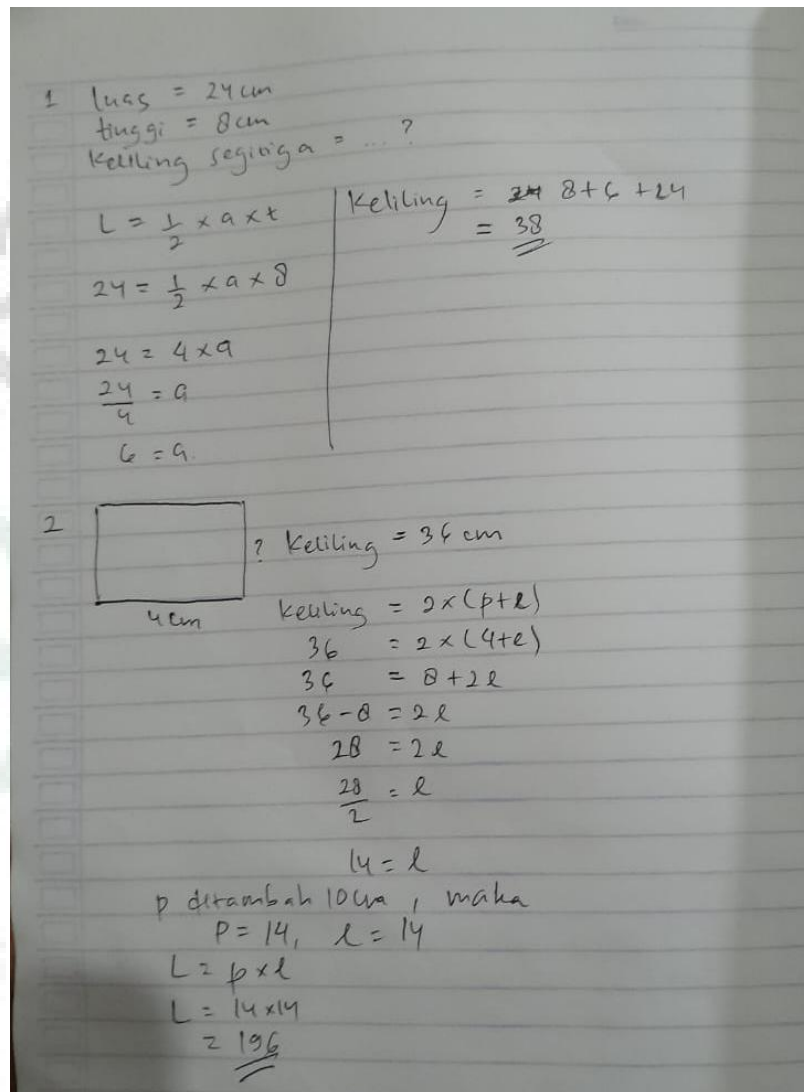 1 luas = 24 cm
tinggi = 8 cm
Keliling segitiga = ... ?
L = 1/2 x a x t
24 = 1/2 x a x 8
24 = 4 x a
24/4 = a
6 = a.
Keliling = 8 + 6 + 24
= 38
2
? Keliling = 36 cm
4 cm
Keliling = 2 x (p+l)
36 = 2 x (4+l)
36 = 8 + 2l
36 - 8 = 2l
28 = 2l
28/2 = l
14 = l
p ditambah 10 cm, maka
P = 14, l = 14
L = p x l
L = 14 x 14
= 196